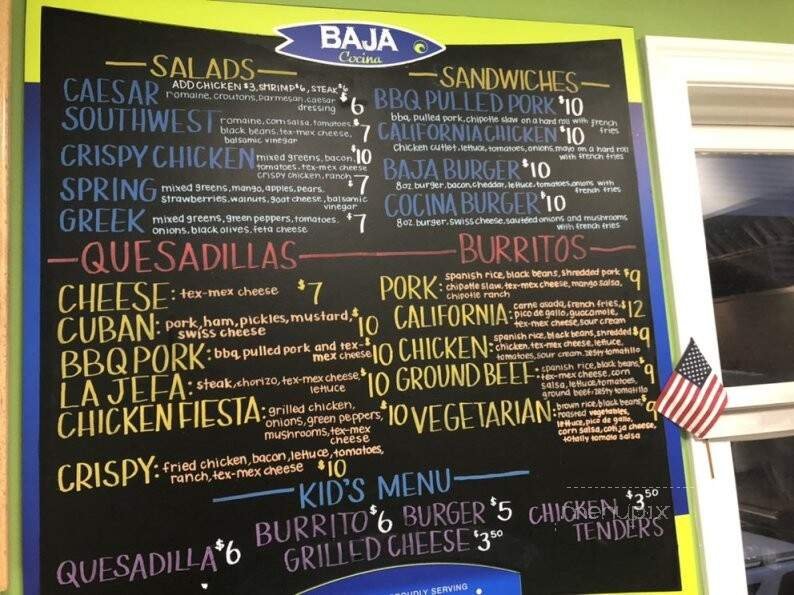 BAJA
Cocina
SALADS
ADD CHICKEN $3, SHRIMP $6, STEAK $6
CAESAR romaine, croutons, parmesan, caesar
dressing $6
SOUTHWEST romaine, corn salsa, tomatoes,
black beans, tex-mex cheese, $7
balsamic vinegar
CRISPY CHICKEN mixed greens, bacon, $10
tomatoes, tex-mex cheese
crispy chicken, ranch
SPRING mixed greens, mango, apples, pears, $7
strawberries, walnuts, goat cheese, balsamic
vinegar
GREEK mixed greens, green peppers, tomatoes, $7
onions, black olives, feta cheese
SANDWICHES
BBQ PULLED PORK $10
bbq, pulled pork, chipotle slaw on a hard roll with french
fries
CALIFORNIA CHICKEN $10
Chicken cutlet, lettuce, tomatoes, onions, mayo on a hard roll
with french fries
BAJA BURGER $10
8oz burger, bacon, cheddar, lettuce, tomatoes, onions with
french fries
COCINA BURGER $10
8oz burger, swiss cheese, sautéed onions and mushrooms
with french fries
QUESADILLAS
CHEESE: tex-mex cheese $7
CUBAN: pork, ham, pickles, mustard, $10
swiss cheese
BBQ PORK: bbq, pulled pork and tex-
mex cheese $10
LA JEFA: steak, chorizo, tex-mex cheese, $10
lettuce
CHICKEN FIESTA: grilled chicken,
onions, green peppers, $10
mushrooms, tex-mex
cheese
CRISPY: fried chicken, bacon, lettuce, tomatoes,
ranch, tex-mex cheese $10
BURRITOS
PORK: spanish rice, black beans, shredded pork $9
chipotle slaw, tex-mex cheese, mango salsa,
chipotle ranch
CALIFORNIA: carne asada, french fries, $12
pico de gallo, guacamole,
tex-mex cheese, sour cream
CHICKEN: spanish rice, black beans, shredded $9
chicken, tex-mex cheese, lettuce,
tomatoes, sour cream, zesty tomatillo
GROUND BEEF: spanish rice, black beans, $9
tex-mex cheese, corn
salsa, lettuce, tomatoes,
ground beef, zesty tomatillo
VEGETARIAN: brown rice, black beans, $9
roasted vegetables,
lettuce, pico de gallo,
corn salsa, cotija cheese,
totally tomato salsa
KID'S MENU
QUESADILLA $6
BURRITO $6
BURGER $5
GRILLED CHEESE $3.50
CHICKEN $3.50
TENDERS
menupix
PROUDLY SERVING